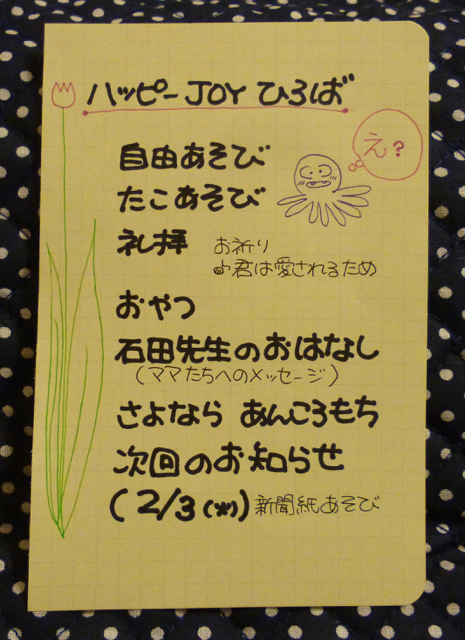 ハッピーJOYひろば
え?
自由あそび
たこあそび
礼拝 お祈り
♪君は愛されるため
おやつ
石田先生のおはなし
(ママたちへのメッセージ)
さよなら あんころもち
次回のお知らせ
(2/3(火))新聞紙あそび